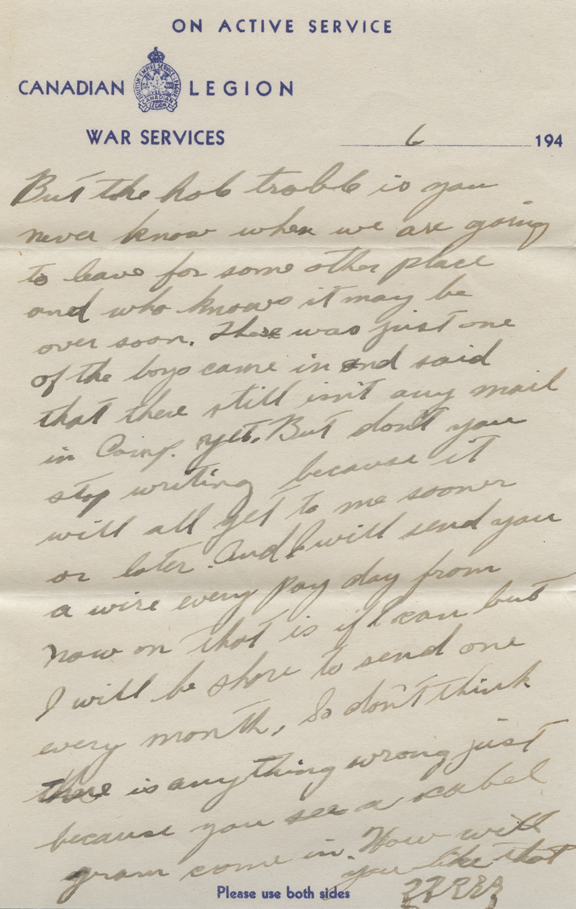 ON ACTIVE SERVICE
CANADIAN LEGION
WAR SERVICES
6 194
But the hob troble is you
never know when we are going
to leave for some other place
and who knows it may be
over soon. There was just one
of the boys came in and said
that there still isn't any mail
in Camp. yet. But don't you
stop writing because it
will all get to me sooner
or later. And I will send you
a wire every pay day from
now on that is if I can but
I will be shore to send one
every month, So don't think
there is anything wrong just
because you see a cabel
gram come in. How will
you like that
Please use both sides